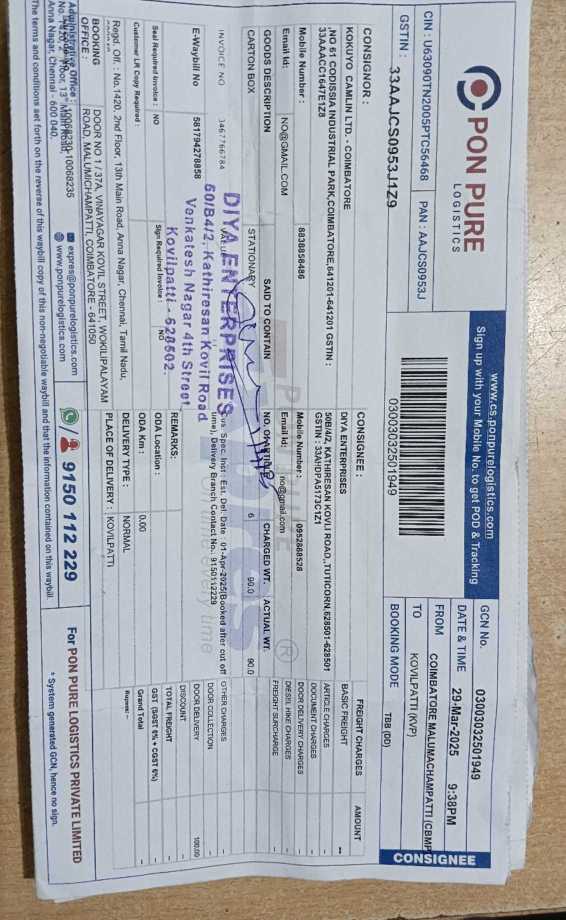 PON PURE
LOGISTICS
www.cs.ponpurelogistics.com
Sign up with your Mobile No. to get POD & Tracking
CIN : U63090TN2005PTC56468
PAN : AAJCS0953J
GSTIN : 33AAJCS0953J1Z9
03003032501949
GCN No. 03003032501949
DATE & TIME 29-Mar-2025 9:38PM
FROM COIMBATORE MALUMACHAMPATTI (CBMP
TO KOVILPATTI (KVP)
BOOKING MODE TBB (DD)
CONSIGNEE
CONSIGNOR :
KOKUYO CAMLIN LTD. - COIMBATORE
,NO 61 CODISSIA INDUSTRIAL PARK,COIMBATORE,641201-641201 GSTIN :
33AAACC1647E1Z8
Mobile Number : 8838858486
Email Id: NO@GMAIL.COM
CONSIGNEE :
DIYA ENTERPRISES
50B/4/2, KATHIRESAN KOVLI ROAD,,TUTICORN,628501-628501
Mobile Number : 0952868528
Email Id: no@gmail.com
FREIGHT CHARGES AMOUNT
BASIC FREIGHT --
ARTICLE CHARGES -
DOCUMENT CHARGES -
DOOR DELIVERY CHARGES -
DIESEL HIKE CHARGES -
FREIGHT SURCHARGE -
OTHER CHARGES -
DOOR COLLECTION -
DOOR DELIVERY 100.00
DISCOUNT -
TOTAL FREIGHT -
GST (SGST 6% + CGST 6%) -
Grand Total -
Rupees: --
GOODS DESCRIPTION SAID TO CONTAIN CHARGED WT. ACTUAL WT.
CARTON BOX STATIONARY 6 90.0 90.0
INVOICE NO 3467766784
Spec. Instr. Est. Del. Date : 01-Apr-2025(Booked after cut off
time), Delivery Branch Contact No. 9150112229
E-Waybill No 581794278858
DIYA ENTERPRISES
50/B4/2, Kathiresan Kovil Road
Venkatesh Nagar 4th Street,
Kovilpatti - 628502.
Seal Required Invoice : NO
Sign Required Invoice : NO
Customer LR Copy Required :
REMARKS:
ODA Location :
ODA Km : 0.00
DELIVERY TYPE : NORMAL
PLACE OF DELIVERY : KOVILPATTI
Regd. Off. : No.1420, 2nd Floor, 13th Main Road, Anna Nagar, Chennai, Tamil Nadu,
BOOKING OFFICE :
DOOR NO 1 / 37A, VINAYAGAR KOVIL STREET, WOKILIPALAYAM
ROAD, MALUMICHAMPATTI, COIMBATORE - 641050
Administrative Office :
Anna Nagar, Chennai - 600 040.
expres@ponpurelogistics.com
www.ponpurelogistics.com
9150 112 229
For PON PURE LOGISTICS PRIVATE LIMITED
* System generated GCN, hence no sign.
The terms and conditions set forth on the reverse of this waybill copy of this non-negotiable waybill and that the information contained on this waybill